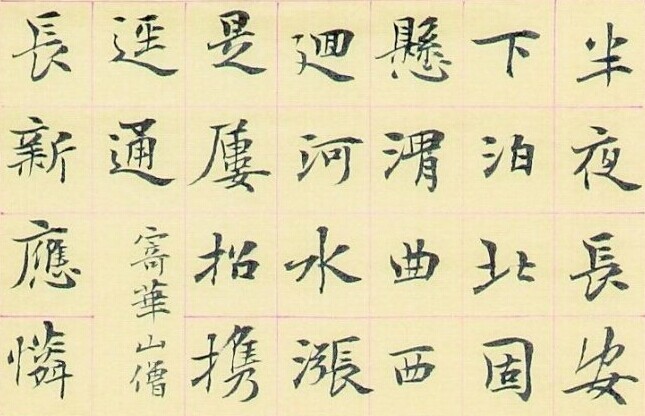 半夜長安
下泊北固
懸渭曲西
廻河水漲
是屢招携
逕通
寄華山僧
長新應憐